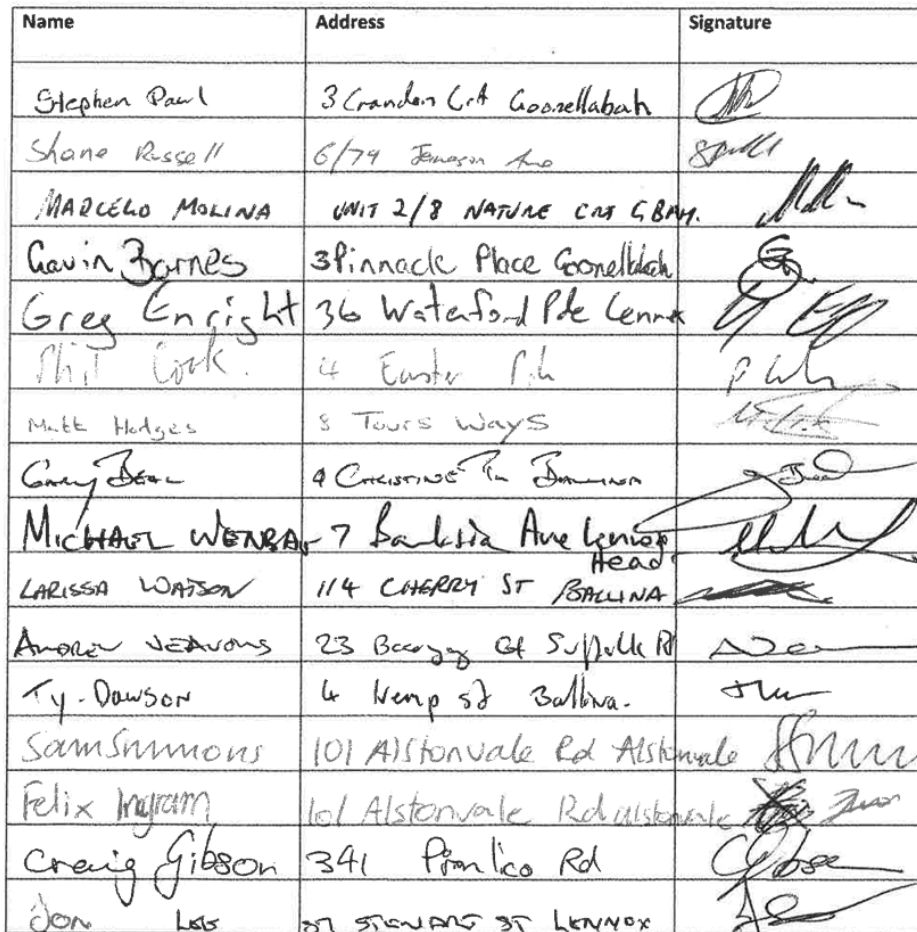 Name Address Signature
Stephen Paul 3 Crandon Crt Goonellabah
Shane Russell 6/79 Jameson Ave
MARCELO MOLINA UNIT 2/8 NATURE CRT GBAH.
Gavin Barnes 3 Pinnacle Place Goonellabah
Greg Enright 36 Waterford Pde Lennox
Phil Cook. 4 Easter
Matt Hodges 8 Tours Ways
GARY BEAL 9 CHRISTINE PL BALLINA
MICHAEL 7 Banksia Ave Lennox
Head
LARISSA WATSON 114 CHERRY ST BALLINA
ANDREW JEAVONS 23 Suffolk Pk
Ty. DAWSON 4 Kemp st Ballina.
Sam Simmons 101 Alstonvale Rd Alstonvale
Felix Ingram 101 Alstonvale Rd alstonvale
Craig Gibson 341 Pimlico Rd
JON LEE STEWART ST LENNOX